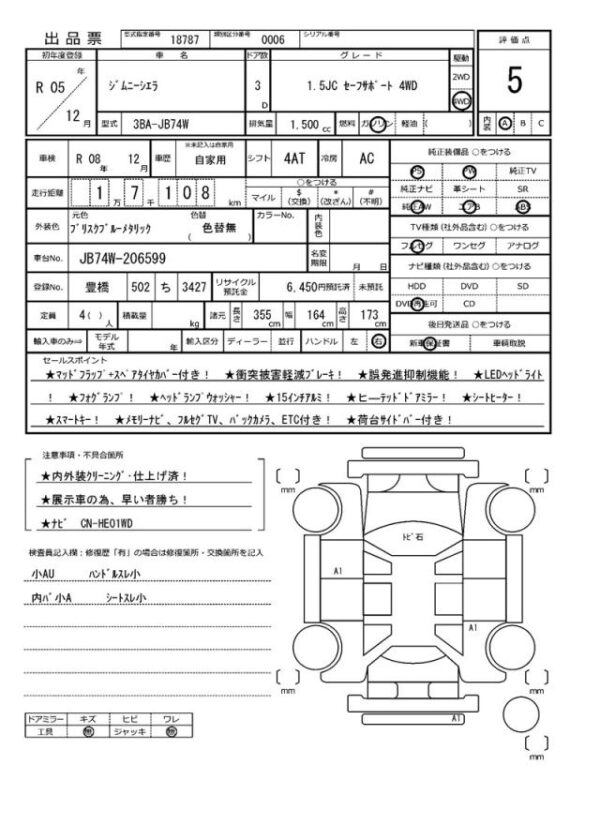 出品票 型式指定番号 18787 類別区分番号 0006 シリアル番号
評価点
5
初年度登録 車名 ドア数 グレード 駆動
R 05 年 12 月 ジムニーシエラ 3 D 1.5JC セーフサポート 4WD 2WD 4WD
型式 3BA-JB74W 排気量 1,500 cc 燃料 ガソリン 軽油 ( ) 内装 A B C
車検 R 08 年 12 月 車歴 ※未記入は自家用 自家用 シフト 4AT 冷房 AC
純正装備品 ○をつける
PS PW 純正TV
純正ナビ 革シート SR
純正AW エアB ABS
走行距離 1 万 7 千 1 0 8 km ○をつける マイル $ (交換) * (改ざん) # (不明)
外装色 元色 ブリスクブルーメタリック 色替 ( 色替無 ) カラーNo. 内装色
TV種類(社外品含む)○をつける
フルセグ ワンセグ アナログ
車台No. JB74W-206599 名変期限 月 日
ナビ種類(社外品含む)○をつける
HDD DVD SD
DVD再生可 CD
登録No. 豊橋 502 ち 3427 リサイクル預託金 6,450円預託済 未預託
定員 4( )人 積載量 kg 諸元 長さ 355 cm 幅 164 cm 高さ 173 cm
後日発送品 ○をつける
新車保証書 車輌取説
輸入車のみ⇒ モデル年式 年 輸入区分 ディーラー 並行 ハンドル 左 右
セールスポイント
★マッドフラップ+スペアタイヤカバー付き! ★衝突被害軽減ブレーキ! ★誤発進抑制機能! ★LEDヘッドライト
! ★フォグランプ! ★ヘッドランプウォッシャー! ★15インチアルミ! ★ヒーテッドドアミラー! ★シートヒーター!
★スマートキー! ★メモリーナビ、フルセグTV、バックカメラ、ETC付き! ★荷台サイドバー付き!
注意事項・不具合箇所
★内外装クリーニング・仕上げ済!
★展示車の為、早い者勝ち!
★ナビ CN-HE01WD
検査員記入欄:修復歴「有」の場合は修復箇所・交換箇所を記入
小AU ハンドルスレ小
内バ小A シートスレ小
ドアミラー キズ ヒビ ワレ
工具 無 ジャッキ 無
mm
mm
トビ石
A1
A1
mm
mm
A1
mm